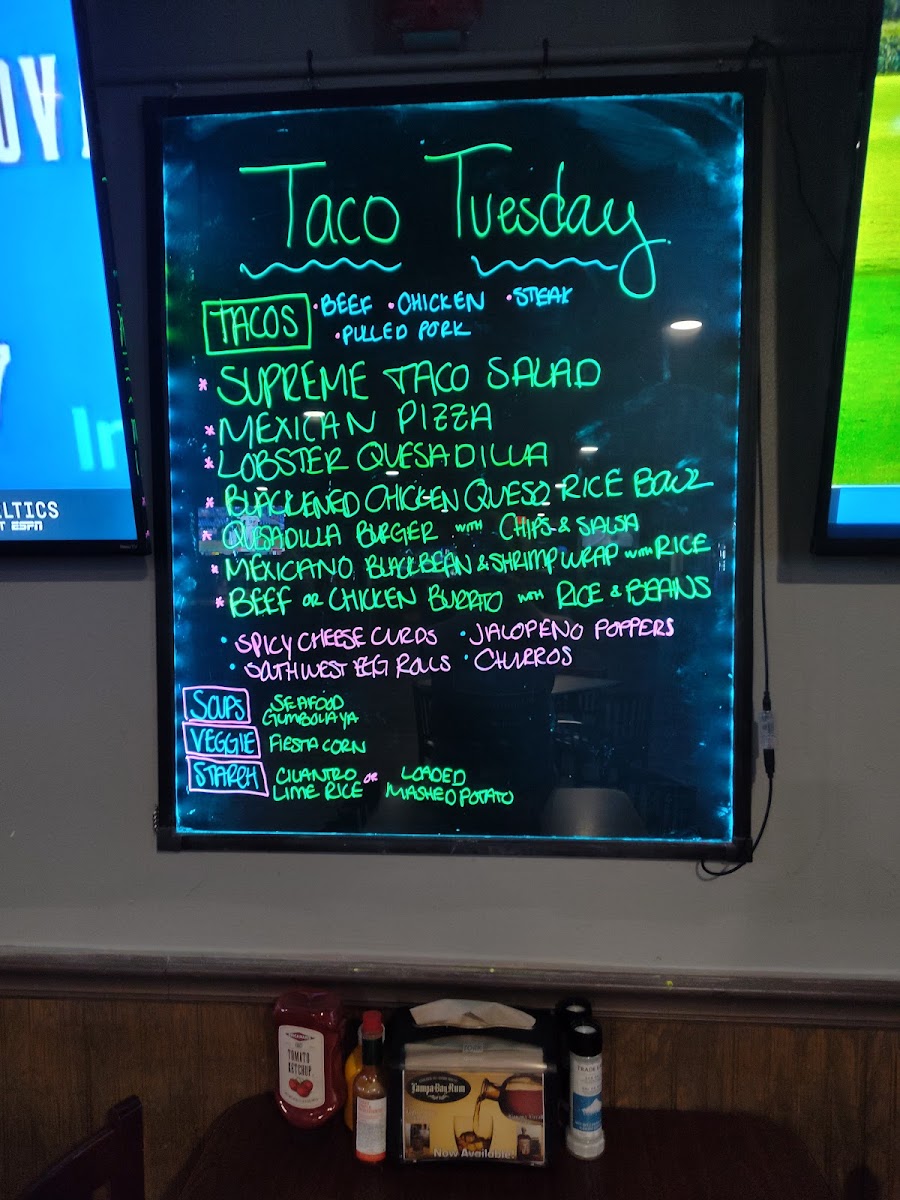 Taco Tuesday
TACOS
• BEEF • CHICKEN • STEAK
• PULLED PORK
* SUPREME TACO SALAD
* MEXICAN PIZZA
* LOBSTER QUESADILLA
* BLACKENED CHICKEN QUESO RICE BOWL
* QUESADILLA BURGER with CHIPS & SALSA
* MEXICANO BLACKBEAN & SHRIMP WRAP with RICE
* BEEF or CHICKEN BURRITO with RICE & BEANS
• SPICY CHEESE CURDS • JALOPENO POPPERS
• SOTHWEST EGG ROLLS • CHURROS
SOUPS SEAFOOD
GUMBOLAYA
VEGGIE FIESTA CORN
STARCH CILANTRO or LOADED
LIME RICE MASHED POTATO
ELTICS
ESPN
In
TOMATO
KETCHUP
Tampa Bay Rum
Now Available!
TRADE